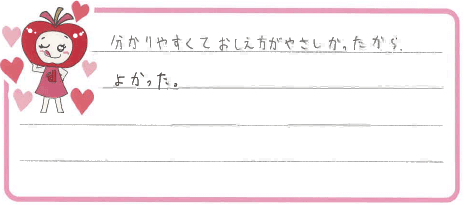 分かりやすくておしえ方がやさしかったから、
よかった。